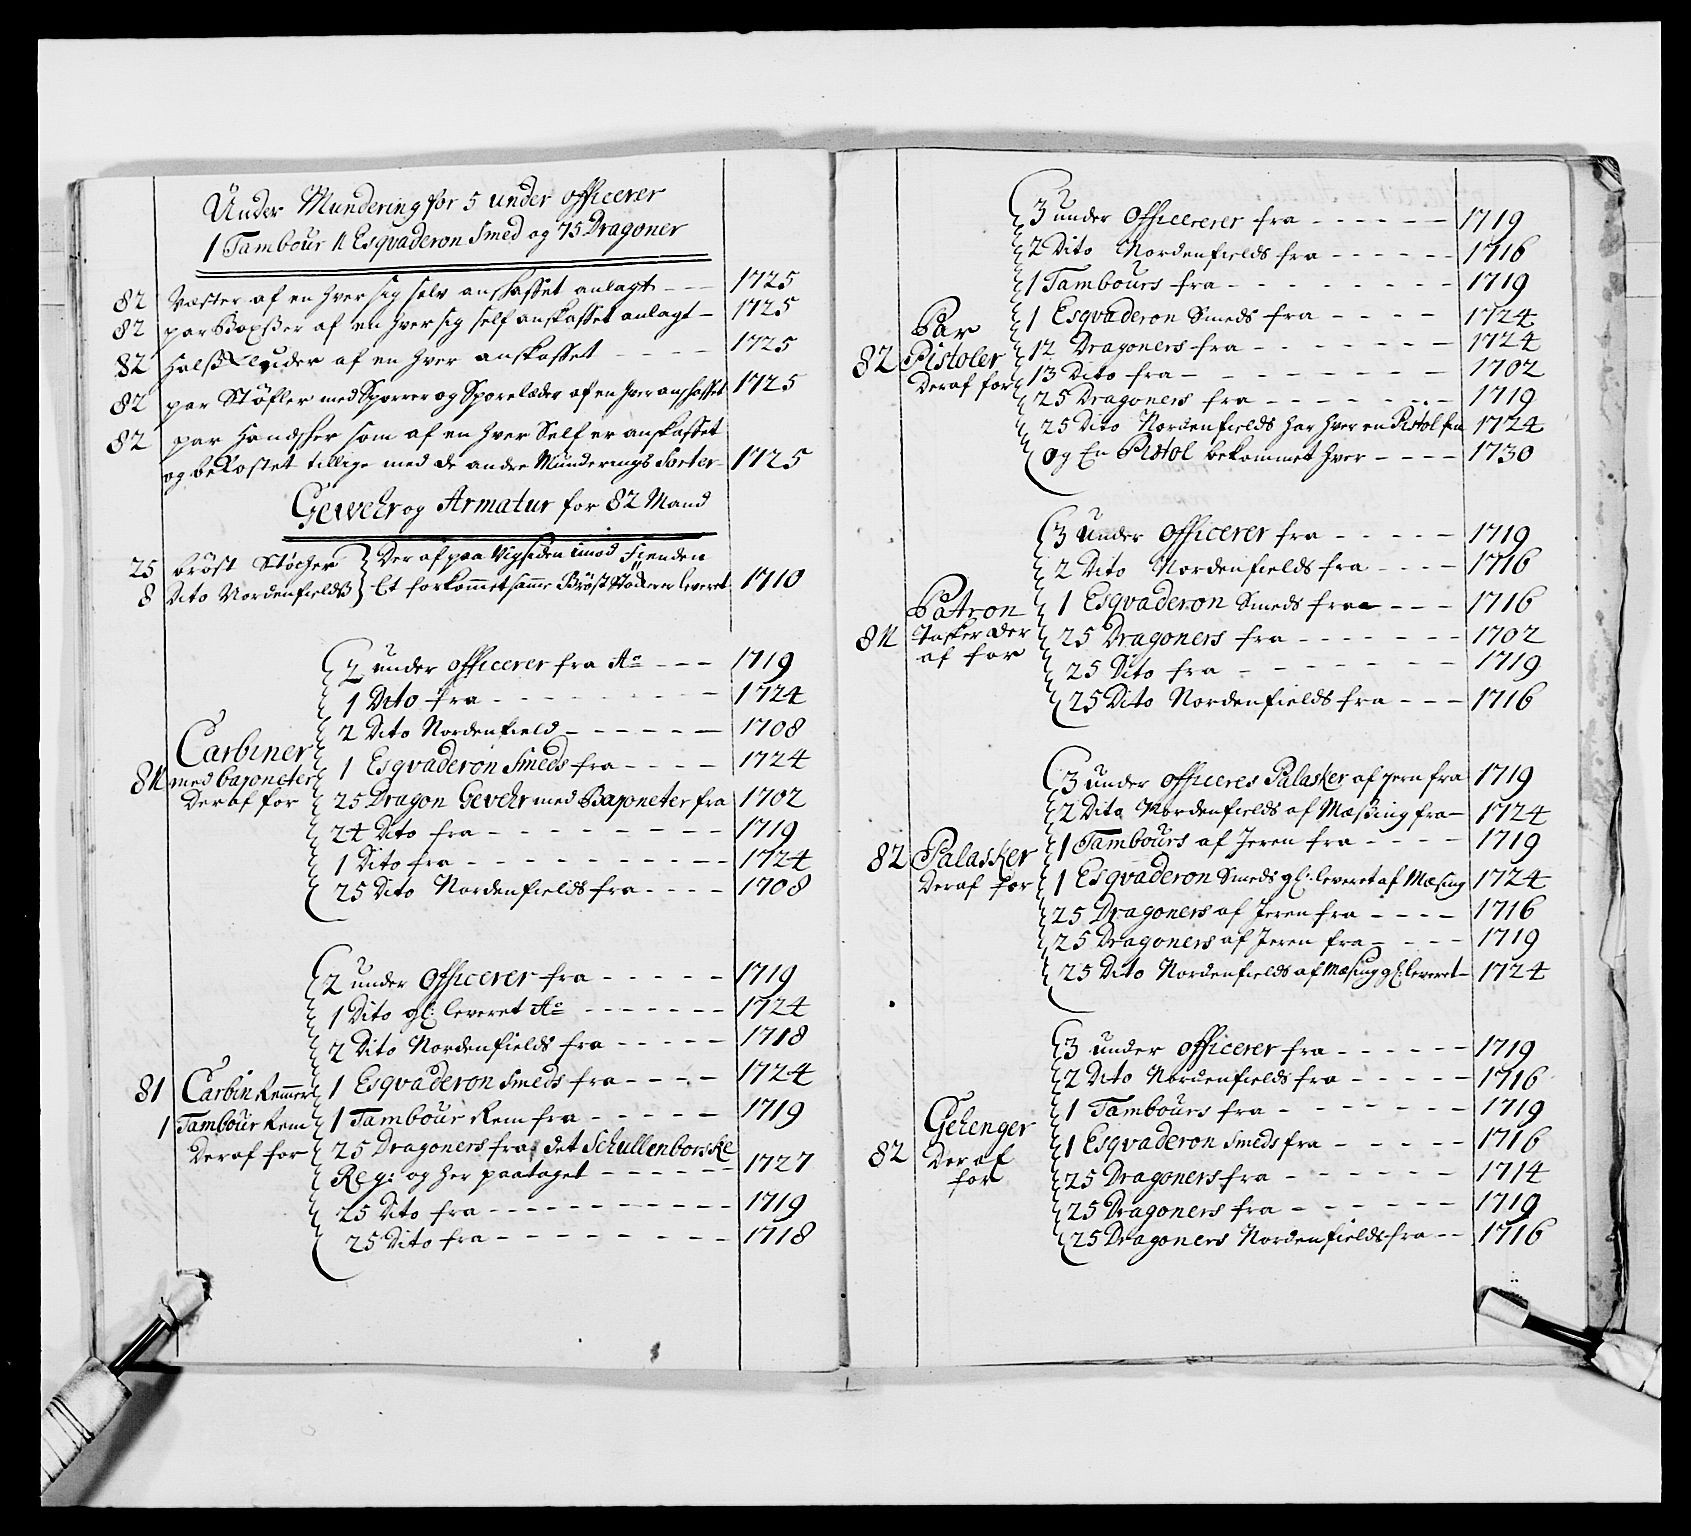 Under Mundering for 5 under officerer
1 Tambour 1 Esqvaderon Smed og 75 Dragoner
82 Væster af en hver sig selv anskaffet anlagt - - - 1725
82 par Boxser af en hver sig self anskaffet anlagt - 1725
82 Halskluder af en hver anskaffet - - - - 1725
82 par Støfler med Sporrer og Sporelæder af en hver anskaffet 1725
82 par Handsker som af en hver Self er anskaffet
og bekostet tillige med de andre Munderings Sorter - 1725
Gewehr og Armatur for 82 Mand
25 brøst Støcher } Der af paa Vigsiden imod Fienden
8 Dito Nordenfields } Et forkommet samme Brøst Støcker er leveret 1710
2 under officerer fra Ao - - - 1719
1 Dito fra - - - - - - - - 1724
2 Dito Nordenfield - - - - - - 1708
Carbiner
81 med bajoneter 1 Esqvaderon Smeds fra - - - - 1724
Deraf for 25 Dragon Gevehr med Bajoneter fra 1702
24 Dito fra - - - - - - - - - 1719
1 Dito fra - - - - - - - - - - 1724
25 Dito Nordenfields fra - - - - 1708
2 under officerer fra - - - - - 1719
1 Dito gl: leveret Ao - - - - - - - 1724
2 Dito Nordenfields fra - - - - - 1718
81 Carbin Remmer 1 Esqvaderon Smeds fra - - - - 1724
1 Tambour Rem 1 Tambour Rem fra - - - - - 1719
Deraf for 25 Dragoners fra det Schullenborske
Reg: og her paataget - - - - - - 1727
25 Dito fra - - - - - - - - - - - 1719
25 Dito fra - - - - - - - - - 1718
3 under Officererer fra - - - - - - 1719
2 Dito Nordenfields fra - - - - - - 1716
1 Tambours fra - - - - - - - - - 1719
Par 1 Esqvaderon Smeds fra - - - - 1724
82 Pistoler 12 Dragoners fra - - - - - - - 1724
Deraf for 13 Dito fra - - - - - - - - - 1702
25 Dragoners fra - - - - - - - - 1719
25 Dito Nordenfields har hver en Pistol fra 1724
og En Pistol bekommet hver - - - - 1730
3 under officerer fra - - - - - 1719
2 Dito Nordenfields fra - - - - 1716
Patron 1 Esqvaderon Smeds fra - - - 1716
81 Tasker Der 25 Dragoners fra - - - - - - - 1702
af for 25 Dito fra - - - - - - - - 1719
25 Dito Nordenfields fra - - - 1716
3 under officeres Palasker af jern fra 1719
2 Dito Nordenfields af Mæssing fra - 1724
82 Palasker 1 Tambours af Jeren fra - - - - 1719
Deraf for 1 Esqvaderon Smeds gl: leveret af Mæsing 1724
25 Dragoners af Jeren fra - - - - 1716
25 Dragoners af Jeren fra - - - - 1719
25 Dito Nordenfields af Mæsing gl: leveret - 1724
3 under officerer fra - - - - - - 1719
2 Dito Nordenfields fra - - - - - 1716
Gehenger 1 Tambours fra - - - - - - - 1719
82 Deraf 1 Esqvaderon Smeds fra - - - - - 1716
for 25 Dragoners fra - - - - - - - 1714
25 Dragoners fra - - - - - - - 1719
25 Dragoners Nordenfields fra - - 1716